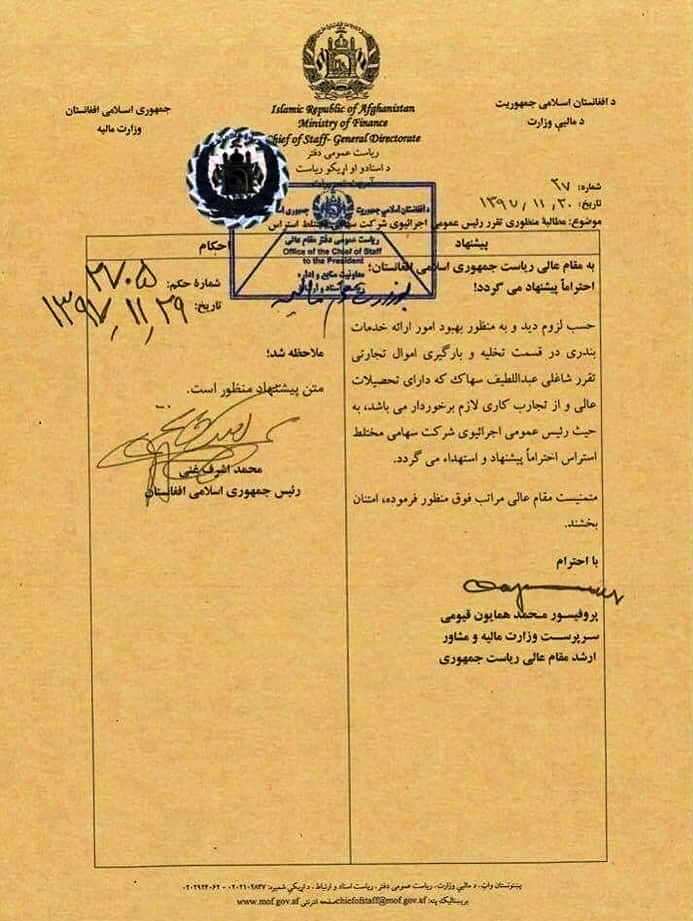 د افغانستان اسلامی جمهوریت
د مالیې وزارت
جمهوری اسلامی افغانستان
وزارت مالیه
Islamic Republic of Afghanistan
Ministry of Finance
Chief of Staff- General Directorate
ریاست عمومی دفتر
د اسنادو او اړیکو ریاست
شماره: ۲۷
تاریخ: ۱۳۹۷/۱۱/۲۰
موضوع: مطالبهٔ منظوری تقرر رئیس عمومی اجرائیوی شرکت سهامی مختلط استراس
د افغانستان اسلامی جمهوریت
ریاست عمومی دفتر مقام عالی
Office of the Chief of Staff
to the President
معاونیت منابع و اداره
پیشنهاد
به مقام عالی ریاست جمهوری اسلامی افغانستان؛
احتراماً پیشنهاد می گردد!
حسب لزوم دید و به منظور بهبود امور ارائه خدمات
بندری در قسمت تخلیه و بارگیری اموال تجارتی
تقرر شاغلی عبداللطیف سهاک که دارای تحصیلات
عالی و از تجارب کاری لازم برخوردار می باشد، به
حیث رئیس عمومی اجرائیوی شرکت سهامی مختلط
استراس احتراماً پیشنهاد و استهداء می گردد.
متمنیست مقام عالی مراتب فوق منظور فرموده، امتنان
بخشند.
با احترام
پروفیسور محمد همایون قیومی
سرپرست وزارت مالیه و مشاور
ارشد مقام عالی ریاست جمهوری
احکام
شمارهٔ حکم: ۲۷۰۵
تاریخ: ۱۳۹۷/۱۱/۲۹
ملاحظه شد؛
متن پیشنهاد منظور است.
محمد اشرف غنی
رئیس جمهوری اسلامی افغانستان
پښتونستان واټ، د مالیې وزارت، ریاست عمومی دفتر، ریاست اسناد و ارتباط. د اړیکې شمیره: ۰۲۰۲۱۰۲۸۳۷ - ۰۲۰۲۹۲۴۰۶۲
بریښنالیک پته: chiefofstaff@mof.gov.af صفحه انترنتی www.mof.gov.af